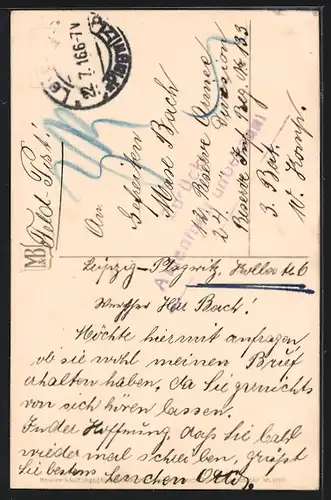 Feld-Post!
22.7.16.6-7V
An
Gefreiten
Max Bach
12. Reserve Armee
24 Division
Reserve Inf. Reg. No 133
3. Bat.
10. Komp.
Zurück
unbekannt
Leipzig-Plagwitz,
Werther Herr Bach!
Möchte hiermit anfragen
ob sie wohl meinen Brief
erhalten haben. Da Sie garnichts
von sich hören lassen.
In der Hoffnung, dass Sie bald
wieder mal schreiben, grüsst
Sie bestens Lenchen Otto